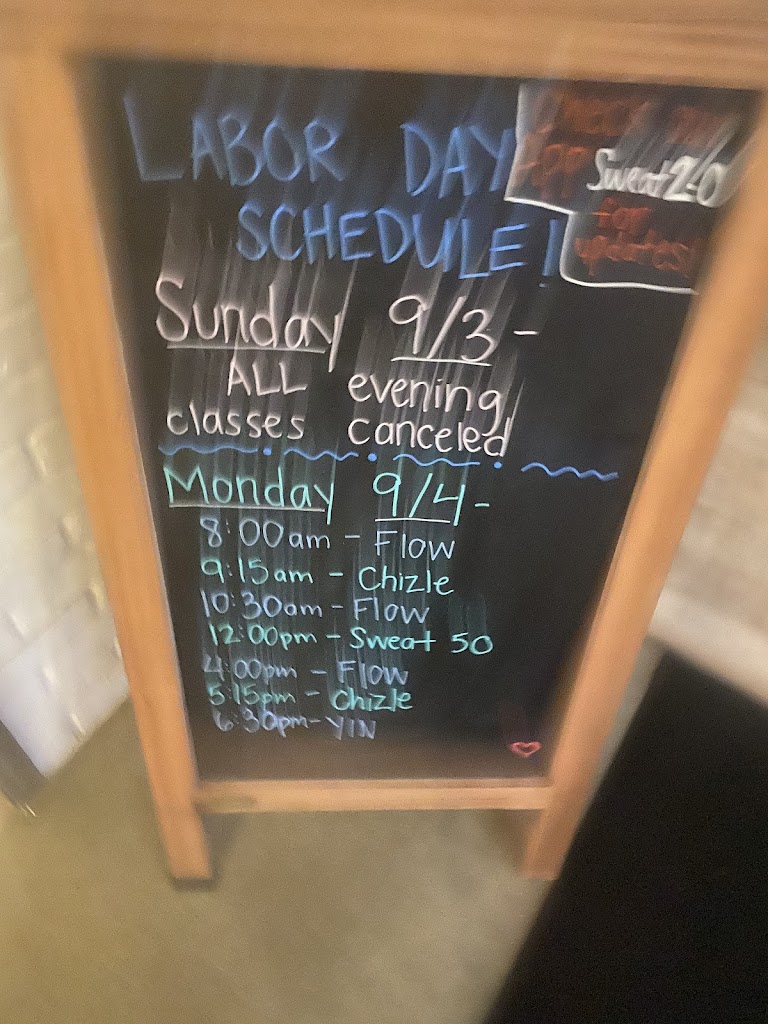 LABOR DAY
SCHEDULE!
APP Sweat 2.0
for
Sunday 9/3 -
ALL evening
classes canceled
Monday 9/4 -
8:00am - Flow
9:15am - Chizle
10:30am - Flow
12:00pm - Sweat 50
4:00pm - Flow
5:15pm - Chizle
6:30pm - YIN